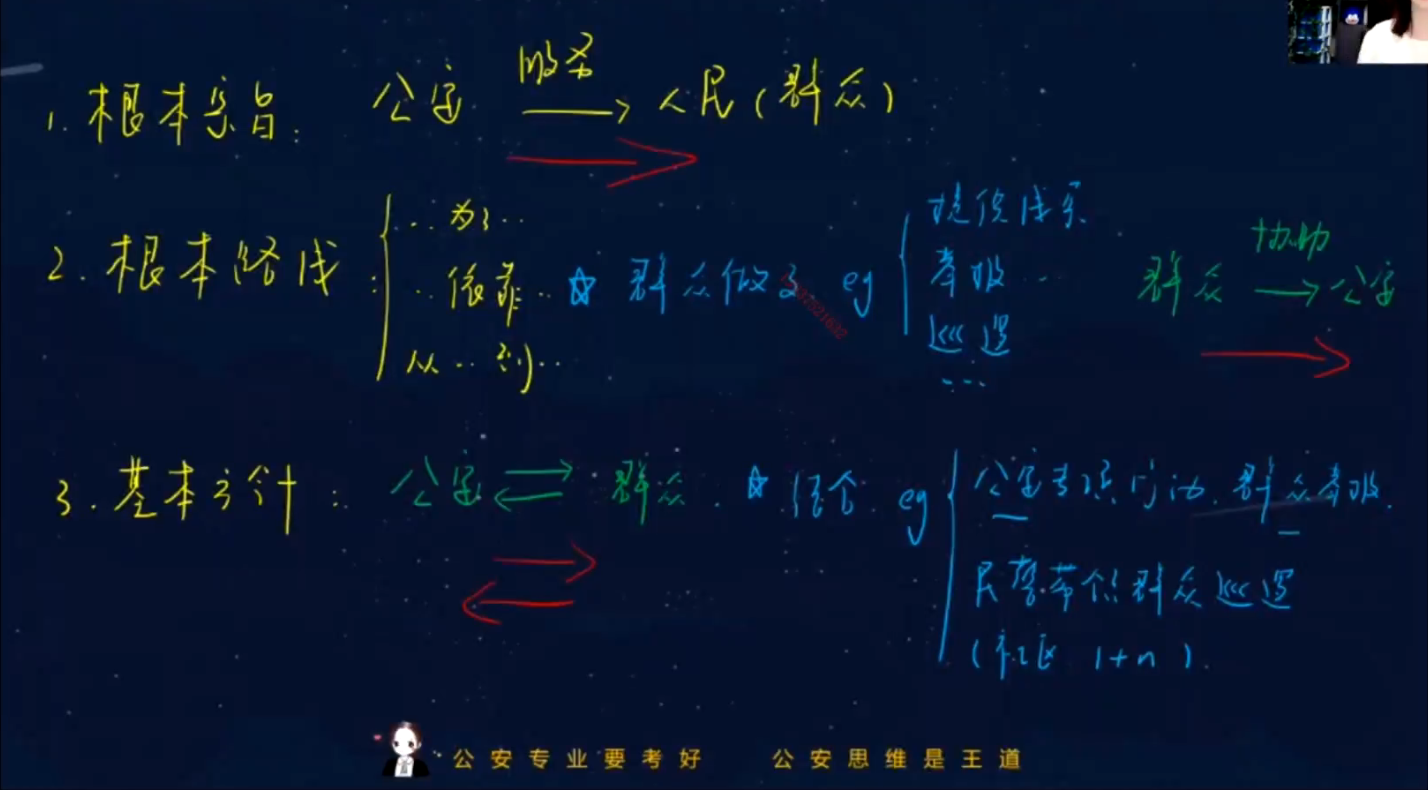 1. 根本宗旨: 公安 服务 → 人民(群众)
2. 根本路线: ‥为了‥
‥依靠‥ ☆ 群众做了 eg
从‥到‥
提供线索
举报 ‥
巡逻
...
群众 协助 → 公安
3. 基本方针: 公安 ⇄ 群众. ☆ 结合 eg
公安专项行动. 群众举报.
民警带领群众巡逻
(社区 1+n).
公安专业要考好 公安思维是王道